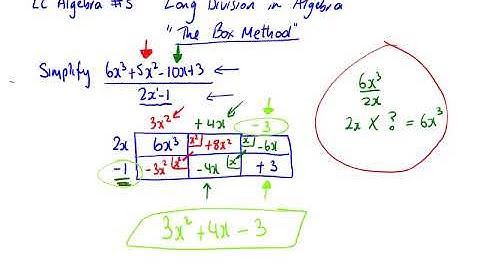 LC Algebra #5 Long Division in Algebra
"The Box Method"
Simplify 6x³+5x²-10x+3
2x-1
3x² +4x -3
2x 6x³ x² +8x² x -6x
-1 -3x² x² -4x x +3
3x²+4x-3
6x³
2x
2x × ? = 6x³